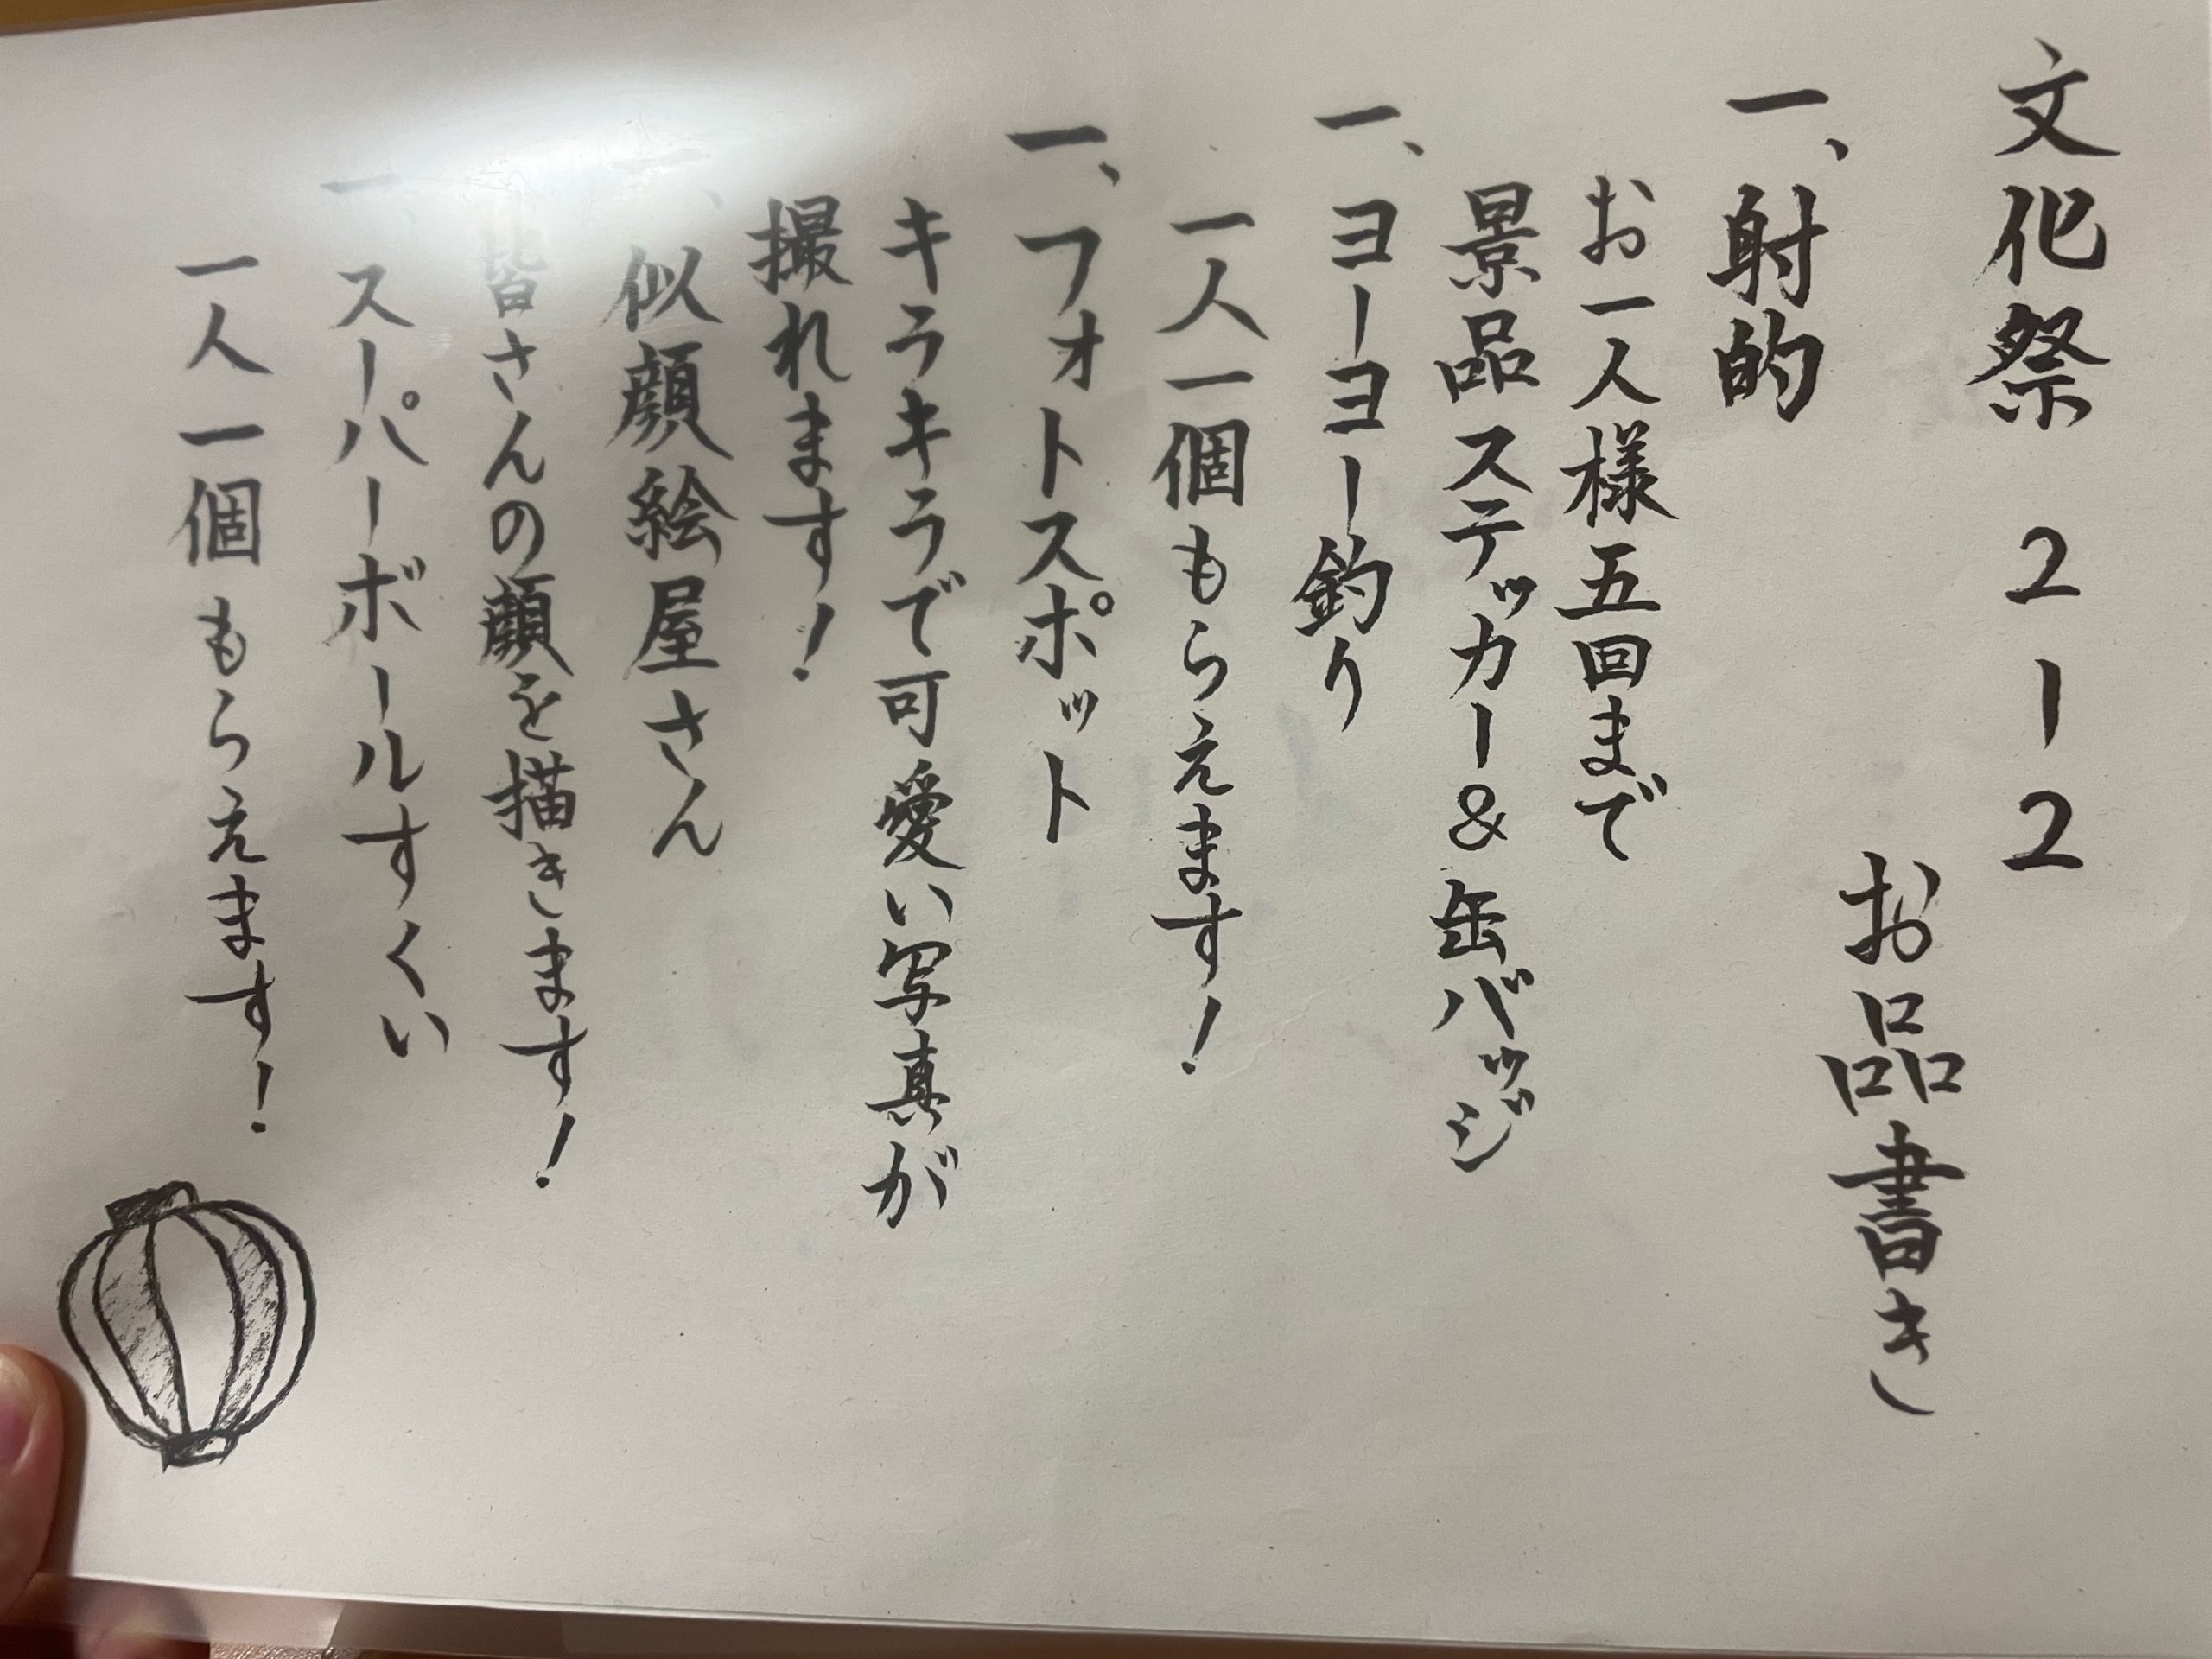 文化祭 2-2
お品書き
一、射的
お一人様五回まで
景品ステッカー&缶バッジ
一、ヨーヨー釣り
一人一個もらえます!
一、フォトスポット
キラキラで可愛い写真が
撮れます!
一、似顔絵屋さん
皆さんの顔を描きます!
一、スーパーボールすくい
一人一個もらえます!